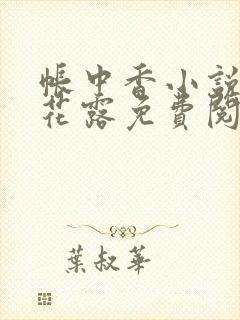 帳中香小說
花露免費閱
葉叔華